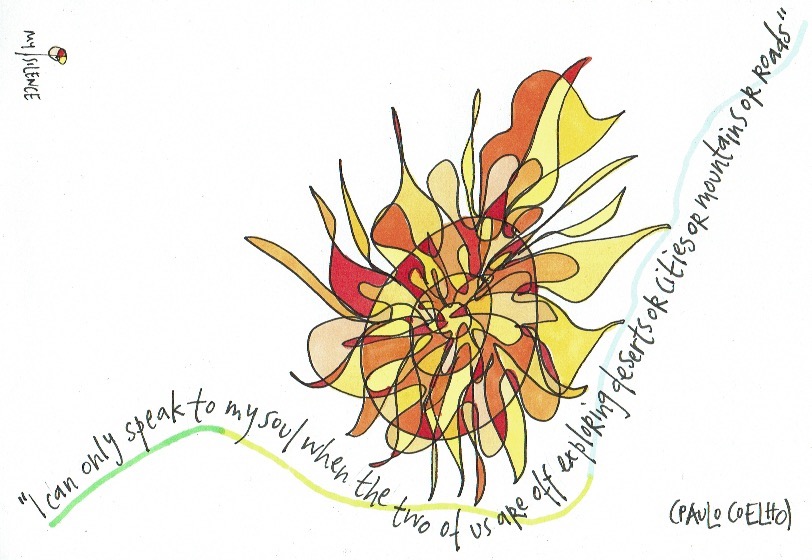 MY SILENCE
"I can only speak to my soul when the two of us are off exploring deserts or cities or mountains or roads"
(PAULO COELHO)